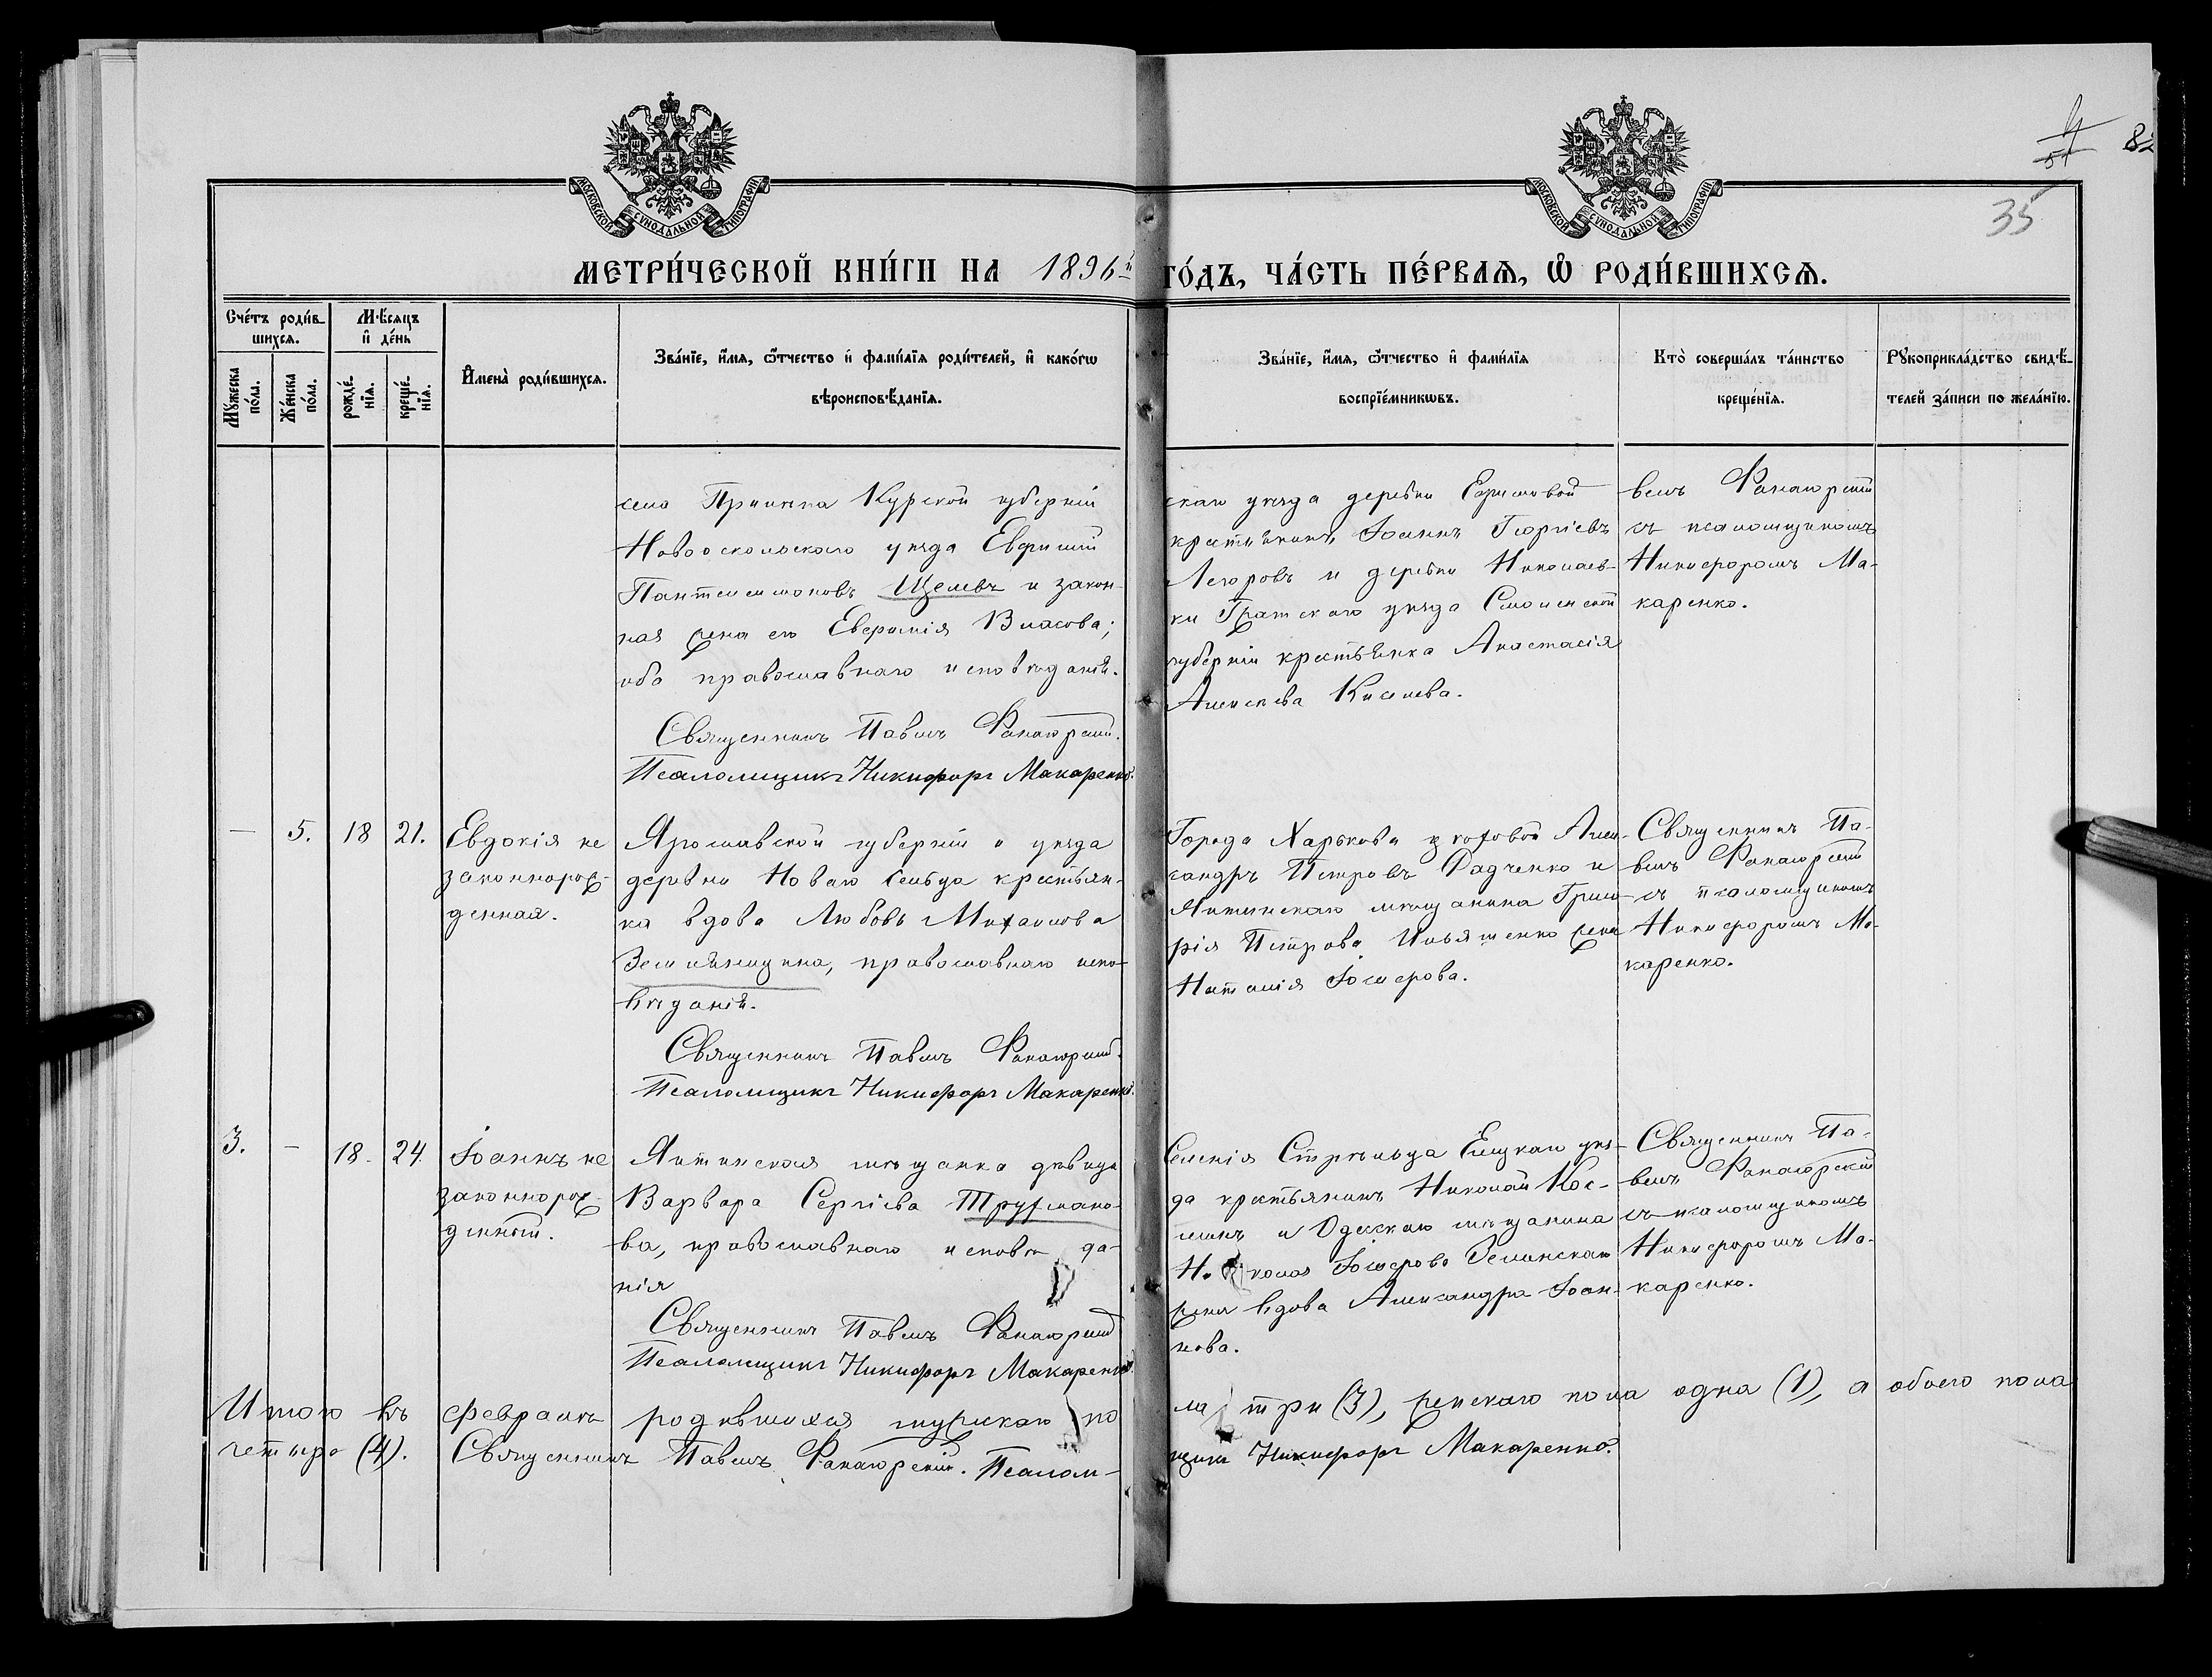 82
35
МОСКОВСКОЙ СѴНОДАЛЬНОЙ ТИПОГРАФІИ
МОСКОВСКОЙ СѴНОДАЛЬНОЙ ТИПОГРАФІИ
МЕТРИ́ЧЕСКОЙ КНИ́ГИ НА 1896й ГО́ДЪ, ЧА́СТЬ ПЕ́РВАѦ, Ѡ РОДИ́ВШИХСѦ.
Сче́тъ роди́в-
шихсѧ.
Мꙋжеска по́ла.
Же́нска по́ла.
Мѣ́сяцъ
и де́нь
рожде́-
нїѧ.
креще́-
нїѧ.
Имена̀ роди́вшихсѧ.
Зва́нїе, и́мѧ, ѻ́тчество и фами́лїѧ роди́телей, и како́гѡ
вѣроисповѣ́данїѧ.
Зва́нїе, и́мѧ, ѻ́тчество и фами́лїѧ
воспрїе́мникѡвъ.
Кто̀ соверша́лъ та́инство
креще́нїѧ.
Рꙋкоприкла́дство свидѣ́-
телей за́писи по жела́нїю.
села Курской губерніи
Новооскольскаго уѣзда Евфимій
Пантелеимоновъ Щелевъ и закон-
ная жена его Евфимія Власова;
оба православнаго исповѣданія.
Священникъ Павелъ Фанагорскій.
Псаломщикъ Никифоръ Макаренко.
скаго уѣзда деревни
крестьянинъ Іоаннъ Георгіевъ
и деревни Николаев-
ки Гжатскаго уѣзда Смоленской
губерніи крестьянка Анастасія
Алексѣева Киселева.
велъ Фанагорскій
съ псаломщикомъ
Никифоромъ Ма-
каренко.
— 5. 18 21.
Евдокія не
законнорож-
денная.
Ярославской губерніи и уѣзда
деревни Новаго Сельца крестьян-
ка вдова Любовь Михаилова
православнаго испо-
вѣданія.
Священникъ Павелъ Фанагорскій.
Псаломщикъ Никифоръ Макаренко.
Города Харькова цеховой Алек-
сандръ Петровъ Радченко и
Ялтинскаго мѣщанина Григо-
рія Петрова Ильяшенко жена
Наталія Іосифова.
Священникъ Па-
велъ Фанагорскій
съ псаломщикомъ
Никифоромъ Ма-
каренко.
3. — 18. 24.
Іоаннъ не
законнорож-
денный.
Ялтинская мѣщанка дѣвица
Варвара Сергіева Трухмано-
ва, православнаго исповѣда-
нія
Священникъ Павелъ Фанагорскій
Псаломщикъ Никифоръ Макаренко.
Селенія Стрѣльца Елецкаго уѣз-
да крестьянинъ Николай Кос-
и Одесскаго мѣщанина
Николая Іосифова Зелинскаго
жена вдова Александра Іоан-
нова.
Священникъ Па-
велъ Фанагорскій
съ псаломщикомъ
Никифоромъ Ма-
каренко.
Итого въ февралѣ родившихся мужскаго по
ла три (3), женскаго пола одна (1), а обоего пола
четыре (4). Священникъ Павелъ Фанагорскій. Псалом-
щикъ Никифоръ Макаренко.